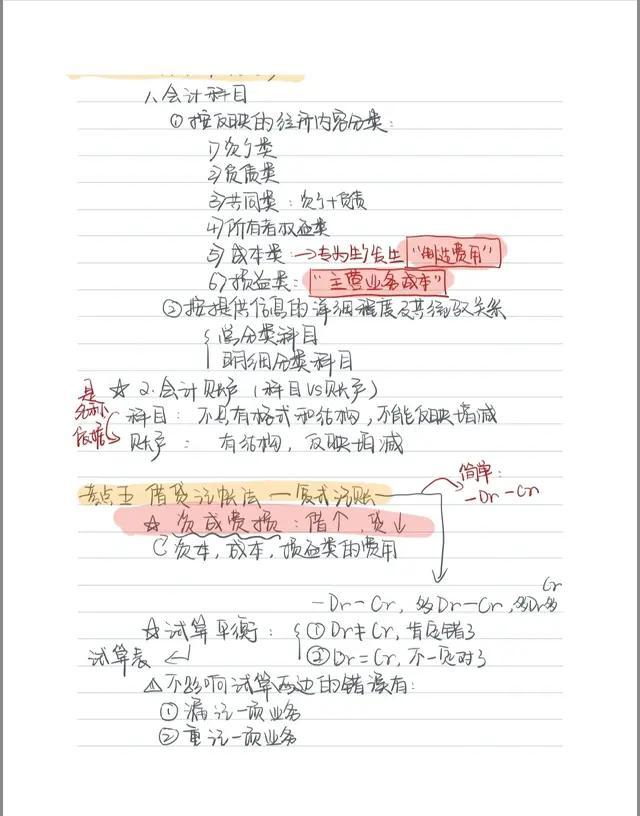 1、会计科目
① 按反映的经济内容分类：
1) 资产类
2) 负债类
3) 共同类：资产+负债
4) 所有者权益类
5) 成本类：→专为生产发生 "制造费用"
6) 损益类： "主营业务成本"
② 按提供信息的详细程度及其统驭关系
总分类科目
明细分类科目
☆ 2.会计账户 (科目VS账户)
是名称依据
科目：不具有格式和结构，不能反映增减
账户：有结构，反映增减
考点五 借贷记帐法 — 复式记账
简单：
一Dr一Cr
☆ 资成费损：借↑，贷↓
资本，成本，损益类的费用
一Dr一Cr，多Dr一Cr，多Dr多Cr
☆试算平衡：
① Dr≠Cr，肯定错了
试算表
② Dr=Cr，不一定对了
△不影响试算两边的错误有：
① 漏记一项业务
② 重记一项业务